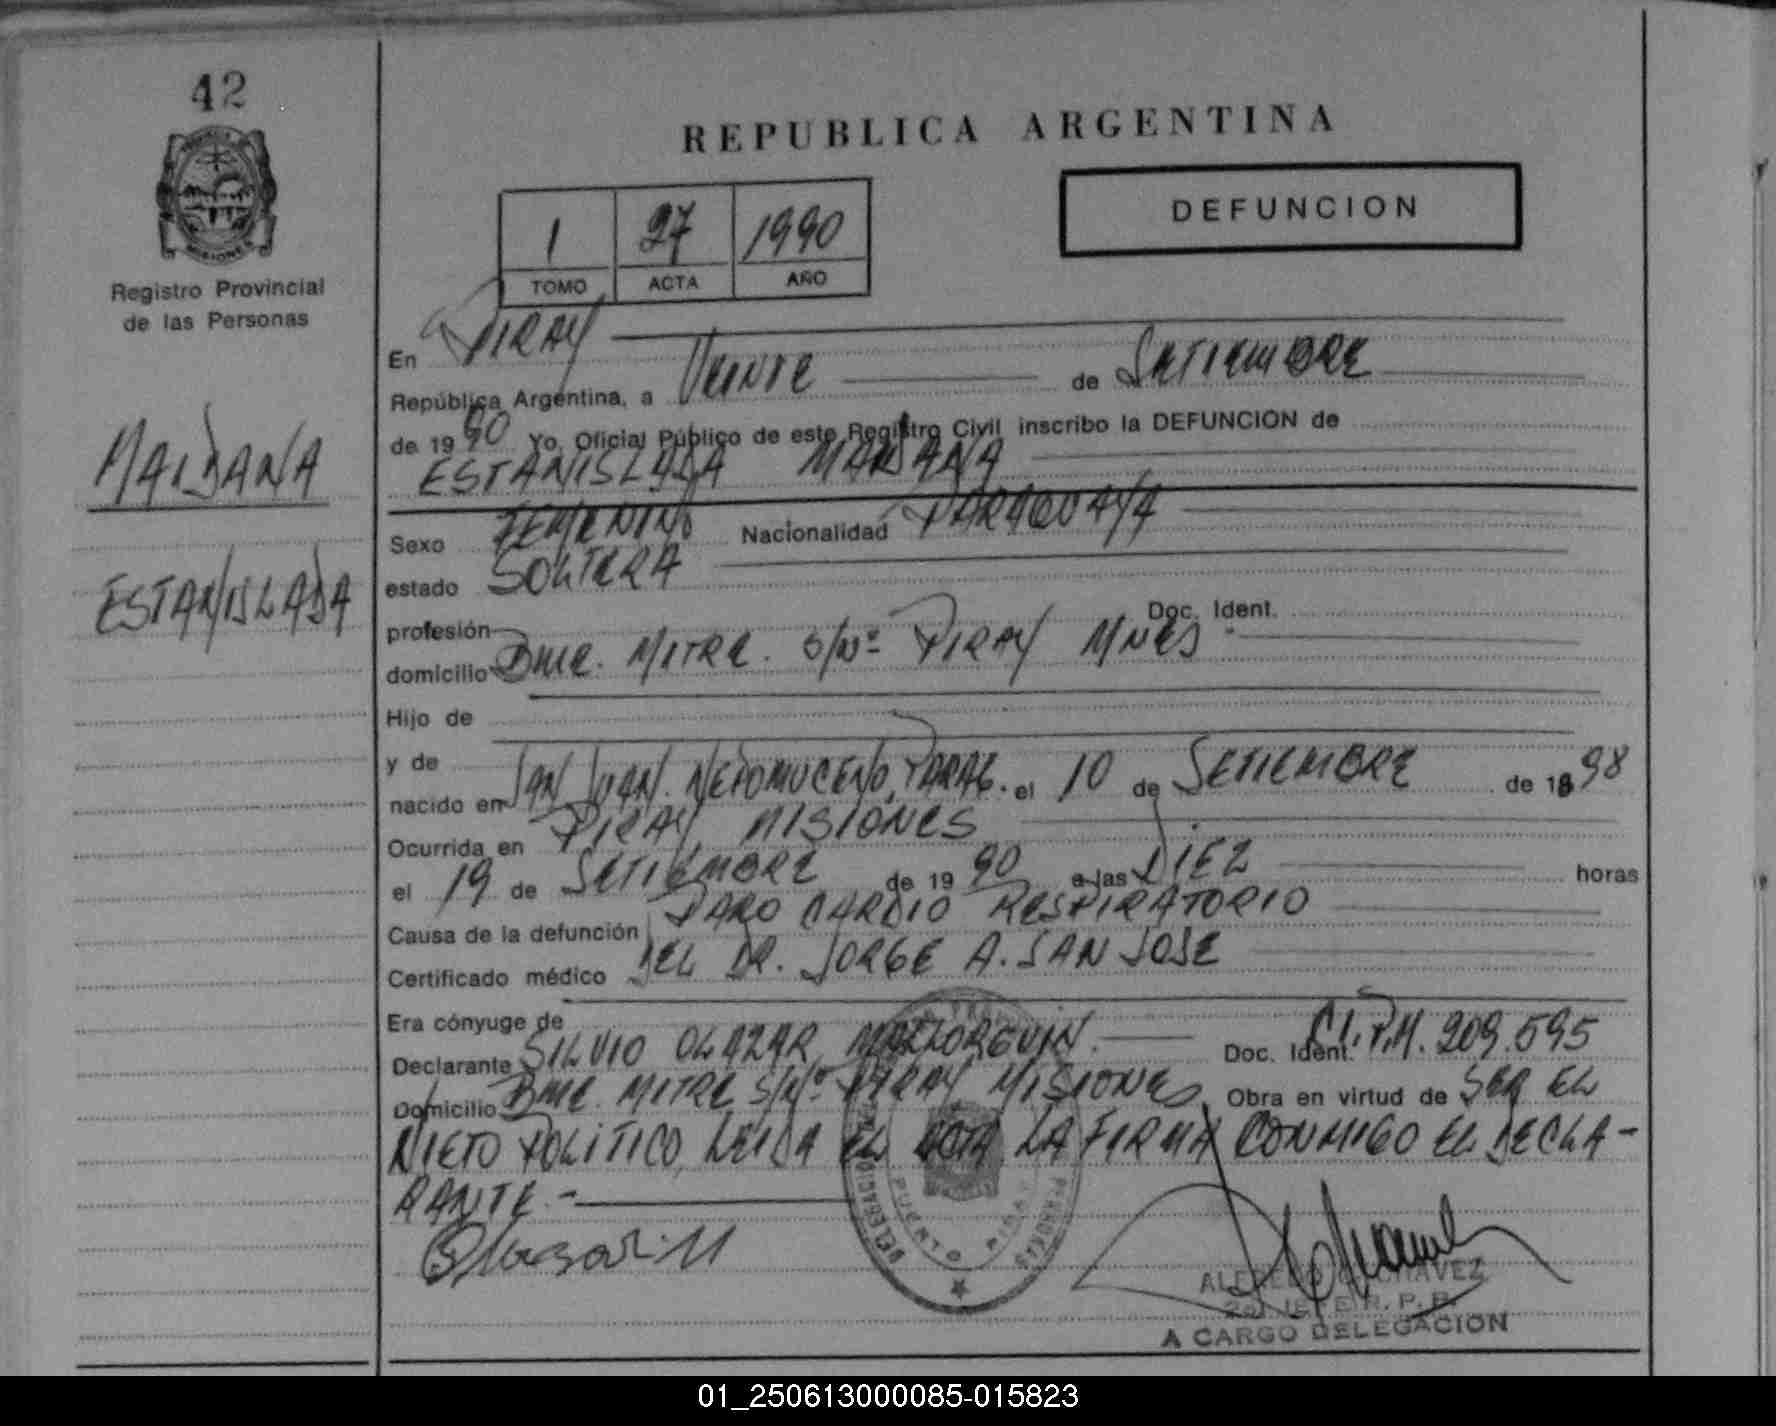 42
REPUBLICA ARGENTINA
DEFUNCION
1 27 1990
TOMO ACTA AÑO
MISIONES
Registro Provincial
de las Personas
MAIDANA
ESTANISLADA
En PIRAY
República Argentina, a Veinte de Setiembre
de 1990 Yo, Oficial Público de este Registro Civil inscribo la DEFUNCION de
ESTANISLADA MAIDANA
Sexo FEMENINO Nacionalidad PARAGUAYA
estado SOLTERA
profesión Doc. Ident.
domicilio Bme. MITRE. S/Nº PIRAY MNES
Hijo de
y de
nacido en SAN JUAN. NEPOMUCENO, PARAG. el 10 de SETIEMBRE de 1898
Ocurrida en PIRAY MISIONES
el 19 de SETIEMBRE de 1990 a las DIEZ horas
Causa de la defunción PARO CARDIO RESPIRATORIO
Certificado médico DEL DR. JORGE A. SAN JOSE
Era cónyuge de
Declarante SILVIO OLAZAR Doc. Ident. C.I.P.M. 209.595
Domicilio Bme. MITRE S/Nº PIRAY MISIONES Obra en virtud de SER EL
NIETO POLITICO, LEIDA EL ACTA LA FIRMA CONMIGO EL DECLA-
RANTE.-
DELEGACION PUERTO PIRAY
A CARGO DELEGACION
01_250613000085-015823